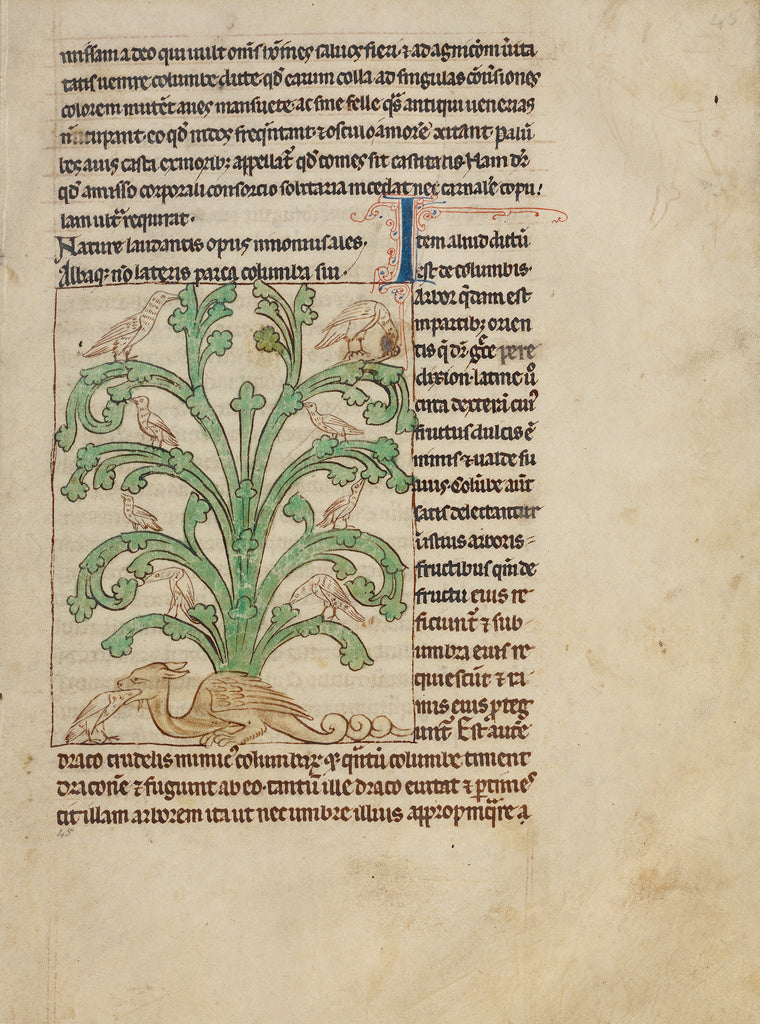 missam a deo qui uult om̄s hoīnes saluos fieri ⁊ ad agnicōm ũita
tatis uenire columbe dicte qđ earum colla ad singulas cōūsiones
colorem mutēt aues mansuete ac sine felle q̄s antiqui uenerias
nūcupant eo qđ nidos freq̄ntant ⁊ osculo amorē
bes auis casta ex moribꝫ appellat̄ qđ comes sit castitatis Nam dr̄
qđ amisso corporali consortio solitaria incedat nec carnalē copu
lam ult̄ requirat.
Nature laudantis opus in omnis aues.
Albaqꝫ nō lateris parca columba sui.
Item aliud dictū
est de columbis.
Arbor q̄dam est
in partibꝫ orien
tis q̄ dr̄ gͨce pere
dixion latine ũ
circa dexterā cuiꝰ
fructus dulcis ē
nimis ⁊ ualde su
auis. Colūbe aūt
satis delectantur
istius arboris
fructibus qm̄ de
fructu eius re
ficiunt̄ ⁊ sub
umbra eius re
quiescūt ⁊ ra
mis eius ꝓteg
unt̄ Est autē
draco crudelis inimicꝰ columbarꝫ ⁊ q̄ntū columbe timent
draconē ⁊ fugiunt ab eo. tantū ille draco euitat ⁊ ꝑtimes
cit illam arborem ita ut nec umbre illius appropinq̄re a
45
45